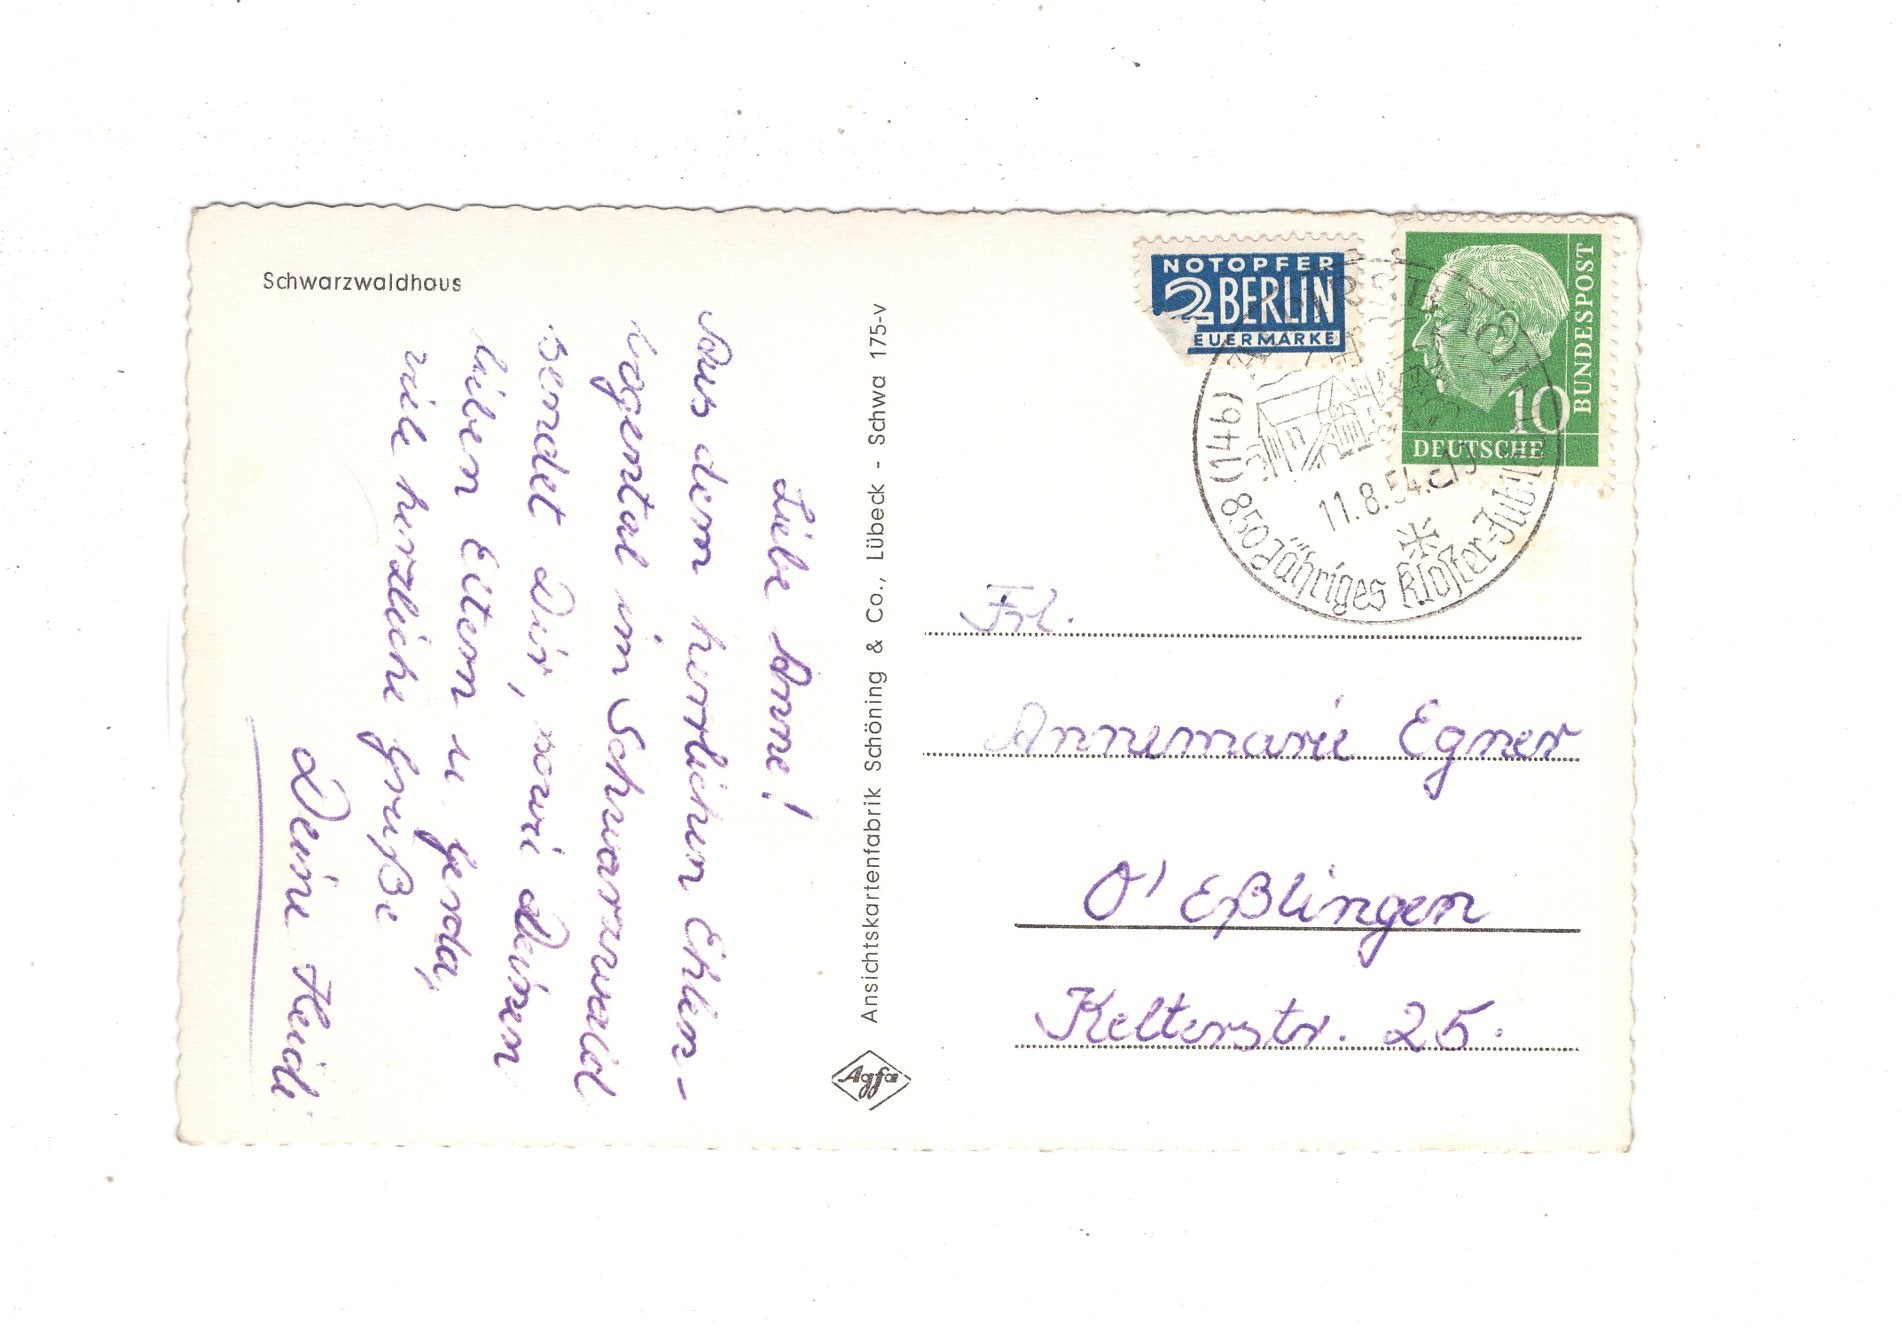 Schwarzwaldhaus
Liebe Anne!
Aus dem herrlichen Ehlen-
bogental im Schwarzwald
sendet Dir, sowie Deinen
lieben Eltern u. Gerda,
viele herzliche Grüße
Deine Heidi
Ansichtskartenfabrik Schöning & Co., Lübeck - Schwa 175-v
Agfa
NOTOPFER
2 BERLIN
EUERMARKE
DEUTSCHE
BUNDESPOST
10
(14b)
11.8.54.
850 Jähriges Kloster-Jubil
Frl.
Annemarie Egner
O' Eßlingen
Kelterstr. 25.